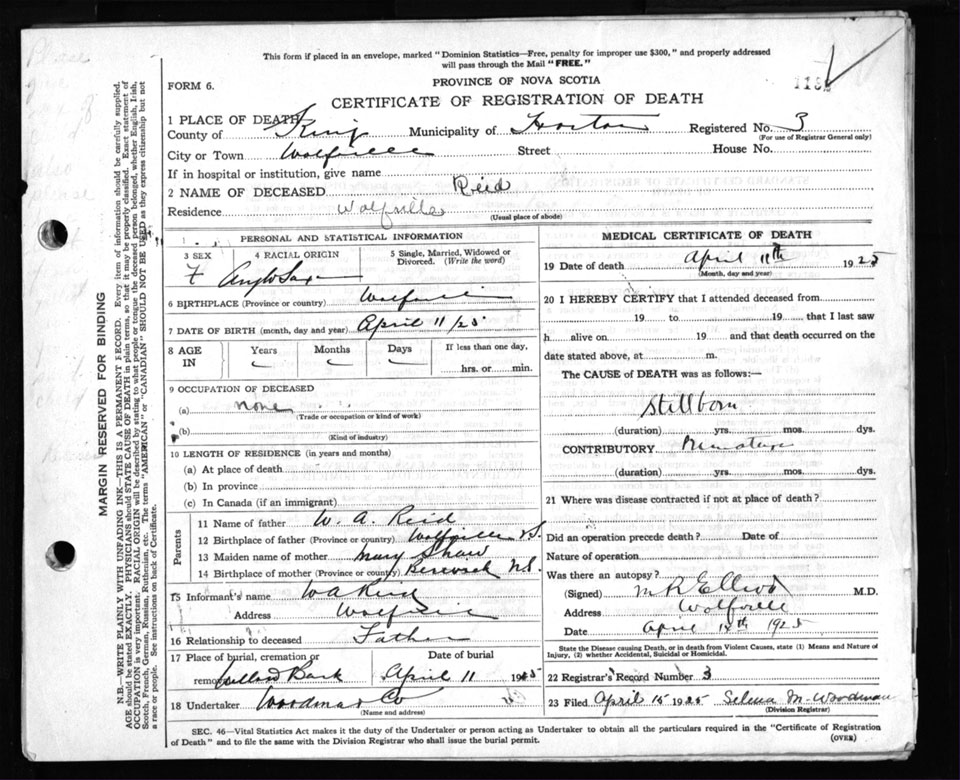 This form if placed in an envelope, marked "Dominion Statistics—Free, penalty for improper use $300," and properly addressed
will pass through the Mail "FREE."
PROVINCE OF NOVA SCOTIA
FORM 6.
CERTIFICATE OF REGISTRATION OF DEATH
1 PLACE OF DEATH
County of Kings Municipality of Horton Registered No. 3
(For use of Registrar General only)
City or Town Wolfville Street House No.
If in hospital or institution, give name
2 NAME OF DECEASED Reid
Residence Wolfville
(Usual place of abode)
PERSONAL AND STATISTICAL INFORMATION
3 SEX 4 RACIAL ORIGIN 5 Single, Married, Widowed or Divorced. (Write the word)
F Anglo Sax
6 BIRTHPLACE (Province or country) Wolfville
7 DATE OF BIRTH (month, day and year) April 11/25
8 AGE IN Years Months Days If less than one day, hrs. or min.
9 OCCUPATION OF DECEASED
(a) none
(Trade or occupation or kind of work)
(b)
(Kind of industry)
10 LENGTH OF RESIDENCE (in years and months)
(a) At place of death
(b) In province
(c) In Canada (if an immigrant)
Parents
11 Name of father W. A. Reid
12 Birthplace of father (Province or country) Wolfville N.S.
13 Maiden name of mother Mary Shaw
14 Birthplace of mother (Province or country) Berwick N.S.
15 Informant's name W A Reid
Address Wolfville
16 Relationship to deceased Father
17 Place of burial, cremation or removal Bank Date of burial April 11 1925
18 Undertaker Woodman Co
(Name and address)
MEDICAL CERTIFICATE OF DEATH
19 Date of death April 11th 1925
(Month, day and year)
20 I HEREBY CERTIFY that I attended deceased from
19 to 19 that I last saw
h alive on 19 and that death occurred on the
date stated above, at m.
The CAUSE of DEATH was as follows:—
Stillborn
(duration) yrs. mos. dys.
CONTRIBUTORY Premature
(duration) yrs. mos. dys.
21 Where was disease contracted if not at place of death?
Did an operation precede death? Date of
Nature of operation
Was there an autopsy?
(Signed) M R Elliott M.D.
Address Wolfville
Date April 1925
State the Disease causing Death, or in death from Violent Causes, state (1) Means and Nature of
Injury, (2) whether Accidental, Suicidal or Homicidal.
22 Registrar's Record Number 3
23 Filed April 15 1925 Selena M. Woodman
(Division Registrar)
SEC. 46—Vital Statistics Act makes it the duty of the Undertaker or person acting as Undertaker to obtain all the particulars required in the "Certificate of Registration
of Death" and to file the same with the Division Registrar who shall issue the burial permit.
(OVER)
MARGIN RESERVED FOR BINDING
N.B.—WRITE PLAINLY WITH UNFADING INK—THIS IS A PERMANENT RECORD. Every item of information should be carefully supplied.
AGE should be stated EXACTLY. PHYSICIANS should STATE CAUSE OF DEATH in plain terms, so that it may be properly classified. Exact statement of
OCCUPATION is very important. RACIAL ORIGIN will be described by stating to what people or tongue the deceased person belonged, whether English, Irish,
Scotch, French, German, Russian, Ruthenian, etc. The terms "AMERICAN" or "CANADIAN" SHOULD NOT BE USED as they express citizenship but not
a race or people. See instructions on back of Certificate.